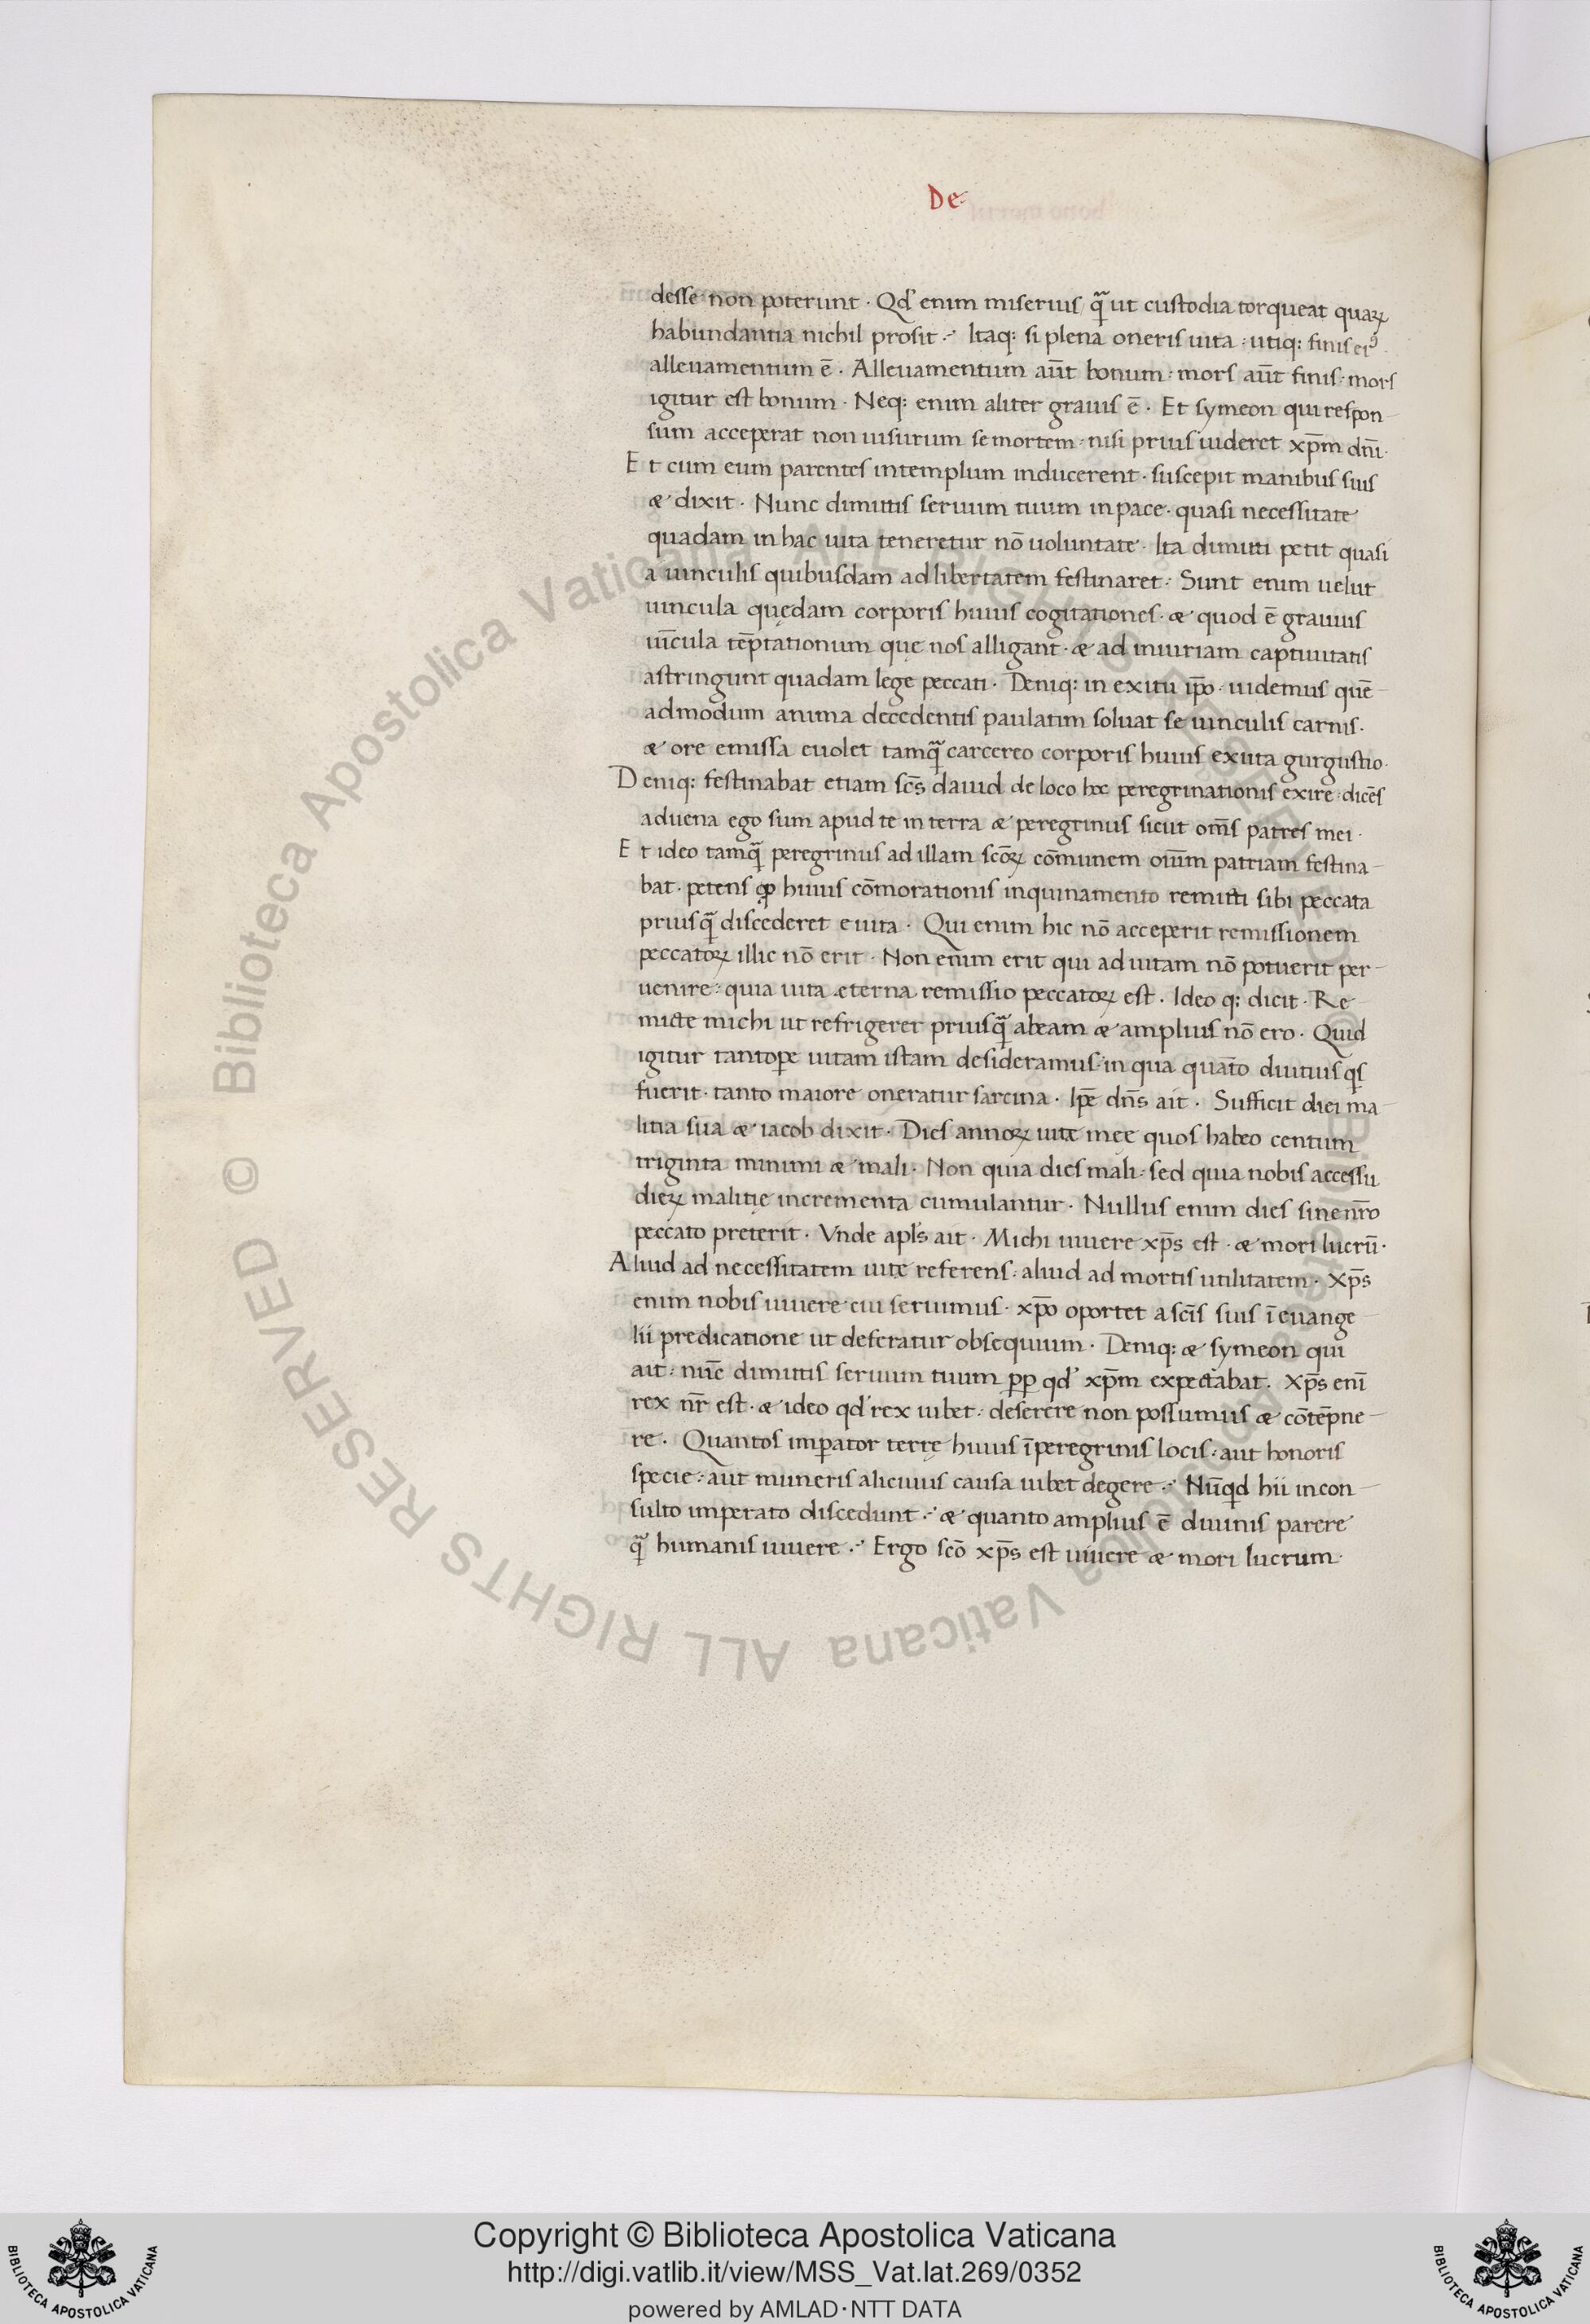 De
desse non poterunt · Qd' enim miserius / qͣ ut custodia torqueat quaꝝ
habundantia nichil prosit ·' Itaq: si plena oneris uita · utiq: finis ei⁹
alleuamentum ē · Alleuamentum aūt bonum · mors aūt finis · mors
igitur est bonum · Neq: enim aliter grauis ē · Et symeon qui respon-
sum acceperat non uisurum se mortem · nisi prius uideret xp̄m dn̄i ·
Et cum eum parentes in templum inducerent · suscepit manibus suis
æ dixit · Nunc dimittis seruum tuum in pace · quasi necessitate
quadam in hac uita teneretur nō uoluntate · Ita dimitti petit quasi
a uinculis quibusdam ad libertatem festinaret · Sunt enim uelut
uincula quędam corporis huius cogitationes · æ quod ē grauius
uīcula tēptationum quę nos alligant · æ ad iniuriam captiuitatis
astringunt quadam lege peccati · Deniq: in exitu ip̄o · uidemus quē-
admodum anima decedentis paulatim soluat se uinculis carnis ·
æ ore emissa euolet tamqͣ carcereo corporis huius exuta gurgustio ·
Deniq: festinabat etiam sc̄s dauid de loco hoc peregrinationis exire · dicēs
aduena ego sum apud te in terra æ peregrinus sicut om̄s patres mei ·
Et ideo tamqͣ peregrinus ad illam scōꝝ cōmunem oium̄ patriam festina-
bat · petens ꝓ huius cōmorationis inquinamento remitti sibi peccata
priusqͣ discederet e uita · Qui enim hic nō acceperit remissionem
peccatoꝝ illic nō erit · Non enim erit qui ad uitam nō potuerit per-
uenire · quia uita ęterna remissio peccatoꝝ est · Ideo q: dicit · Re-
mitte michi ut refrigerer priusqͣ abeam æ amplius nō ero · Quid
igitur tantoꝑe uitam istam desideramus · in qua quāto diutius qͥs
fuerit · tanto maiore oneratur sarcina · Ip̄e dn̄s ait · Sufficit diei ma-
litia sua æ iacob dixit · Dies annoꝝ uitæ meę quos habeo centum
triginta minimi æ mali · Non quia dies mali · sed quia nobis accessu
dieꝝ malitię incrementa cumulantur · Nullus enim dies sine nr̄o
peccato preterit · Vnde apl's ait · Michi uiuere xp̄s est · æ mori lucrū ·
Aliud ad necessitatem uitę referens · aliud ad mortis utilitatem · Xp̄s
enim nobis uiuere cui seruimus · xp̄o oportet a scīs suis ī euange-
lii predicatione ut deferatur obsequium · Deniq: æ symeon qui
ait · nūc dimittis seruum tuum ꝑꝑ qd' xp̄m expectabat · Xp̄s enī
rex nr̄ est · æ ideo qd' rex iubet · deserere non possumus æ cōtēpne-
re · Quantos imꝑator terrę huius ī peregrinis locis · aut honoris
specie · aut muneris alicuius causa iubet degere ·' Nūqͥd hii incon-
sulto imperato discedunt ·' æ quanto amplius ē diuinis parere
qͣ humanis uiuere ·' Ergo scō xp̄s est uiuere æ mori lucrum ·
© Biblioteca Apostolica Vaticana ALL RIGHTS RESERVED © Biblioteca Apostolica Vaticana ALL RIGHTS RESERVED
Copyright © Biblioteca Apostolica Vaticana
http://digi.vatlib.it/view/MSS_Vat.lat.269/0352
powered by AMLAD·NTT DATA
BIBLIOTECA APOSTOLICA VATICANA
BIBLIOTECA APOSTOLICA VATICANA